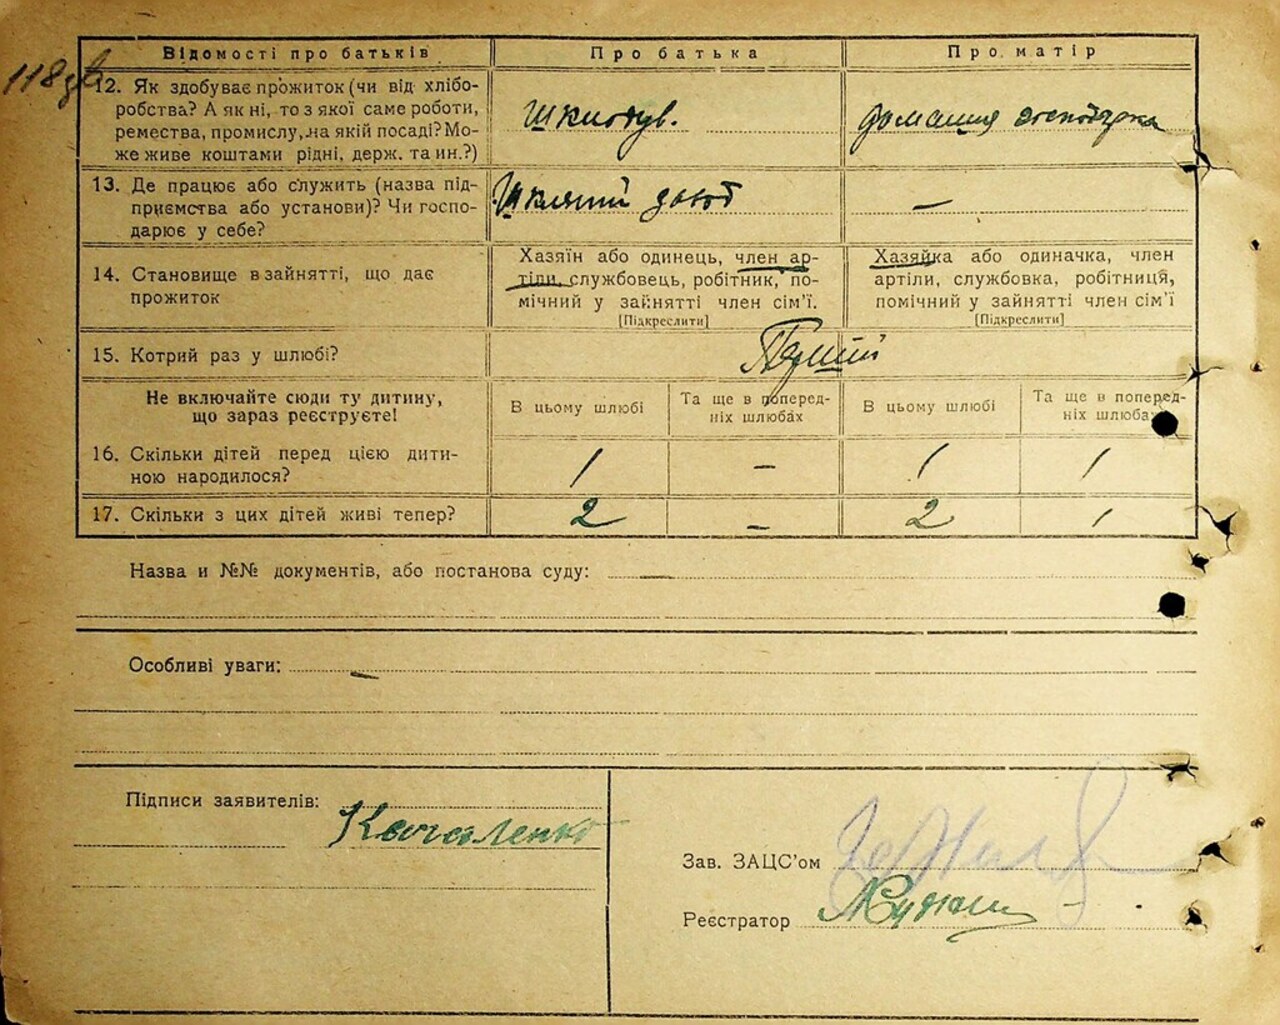 118зв
Відомості про батьків
Про батька
Про матір
12. Як здобуває прожиток (чи від хлібо-
робства? А як ні, то з якої саме роботи,
ремества, промислу, на якій посаді? Мо-
же живе коштами рідні, держ. та ин.?)
домашня господарка
13. Де працює або служить (назва під-
приємства або установи)? Чи госпо-
дарює у себе?
Шкляний завод
—
14. Становище в зайнятті, що дає
прожиток
Хазяїн або одинець, член ар-
тіли, службовець, робітник, по-
мічний у зайнятті член сім'ї.
[Підкреслити]
Хазяйка або одиначка, член
артіли, службовка, робітниця,
помічний у зайнятті член сім'ї
[Підкреслити]
15. Котрий раз у шлюбі?
Не включайте сюди ту дитину,
що зараз реєструєте!
В цьому шлюбі
Та ще в поперед-
ніх шлюбах
В цьому шлюбі
Та ще в поперед-
ніх шлюбах
16. Скільки дітей перед цією дити-
ною народилося?
1
—
1
1
17. Скільки з цих дітей живі тепер?
2
—
2
1
Назва и №№ документів, або постанова суду: —
Особливі уваги: —
Підписи заявителів:
Зав. ЗАЦС'ом
Реєстратор